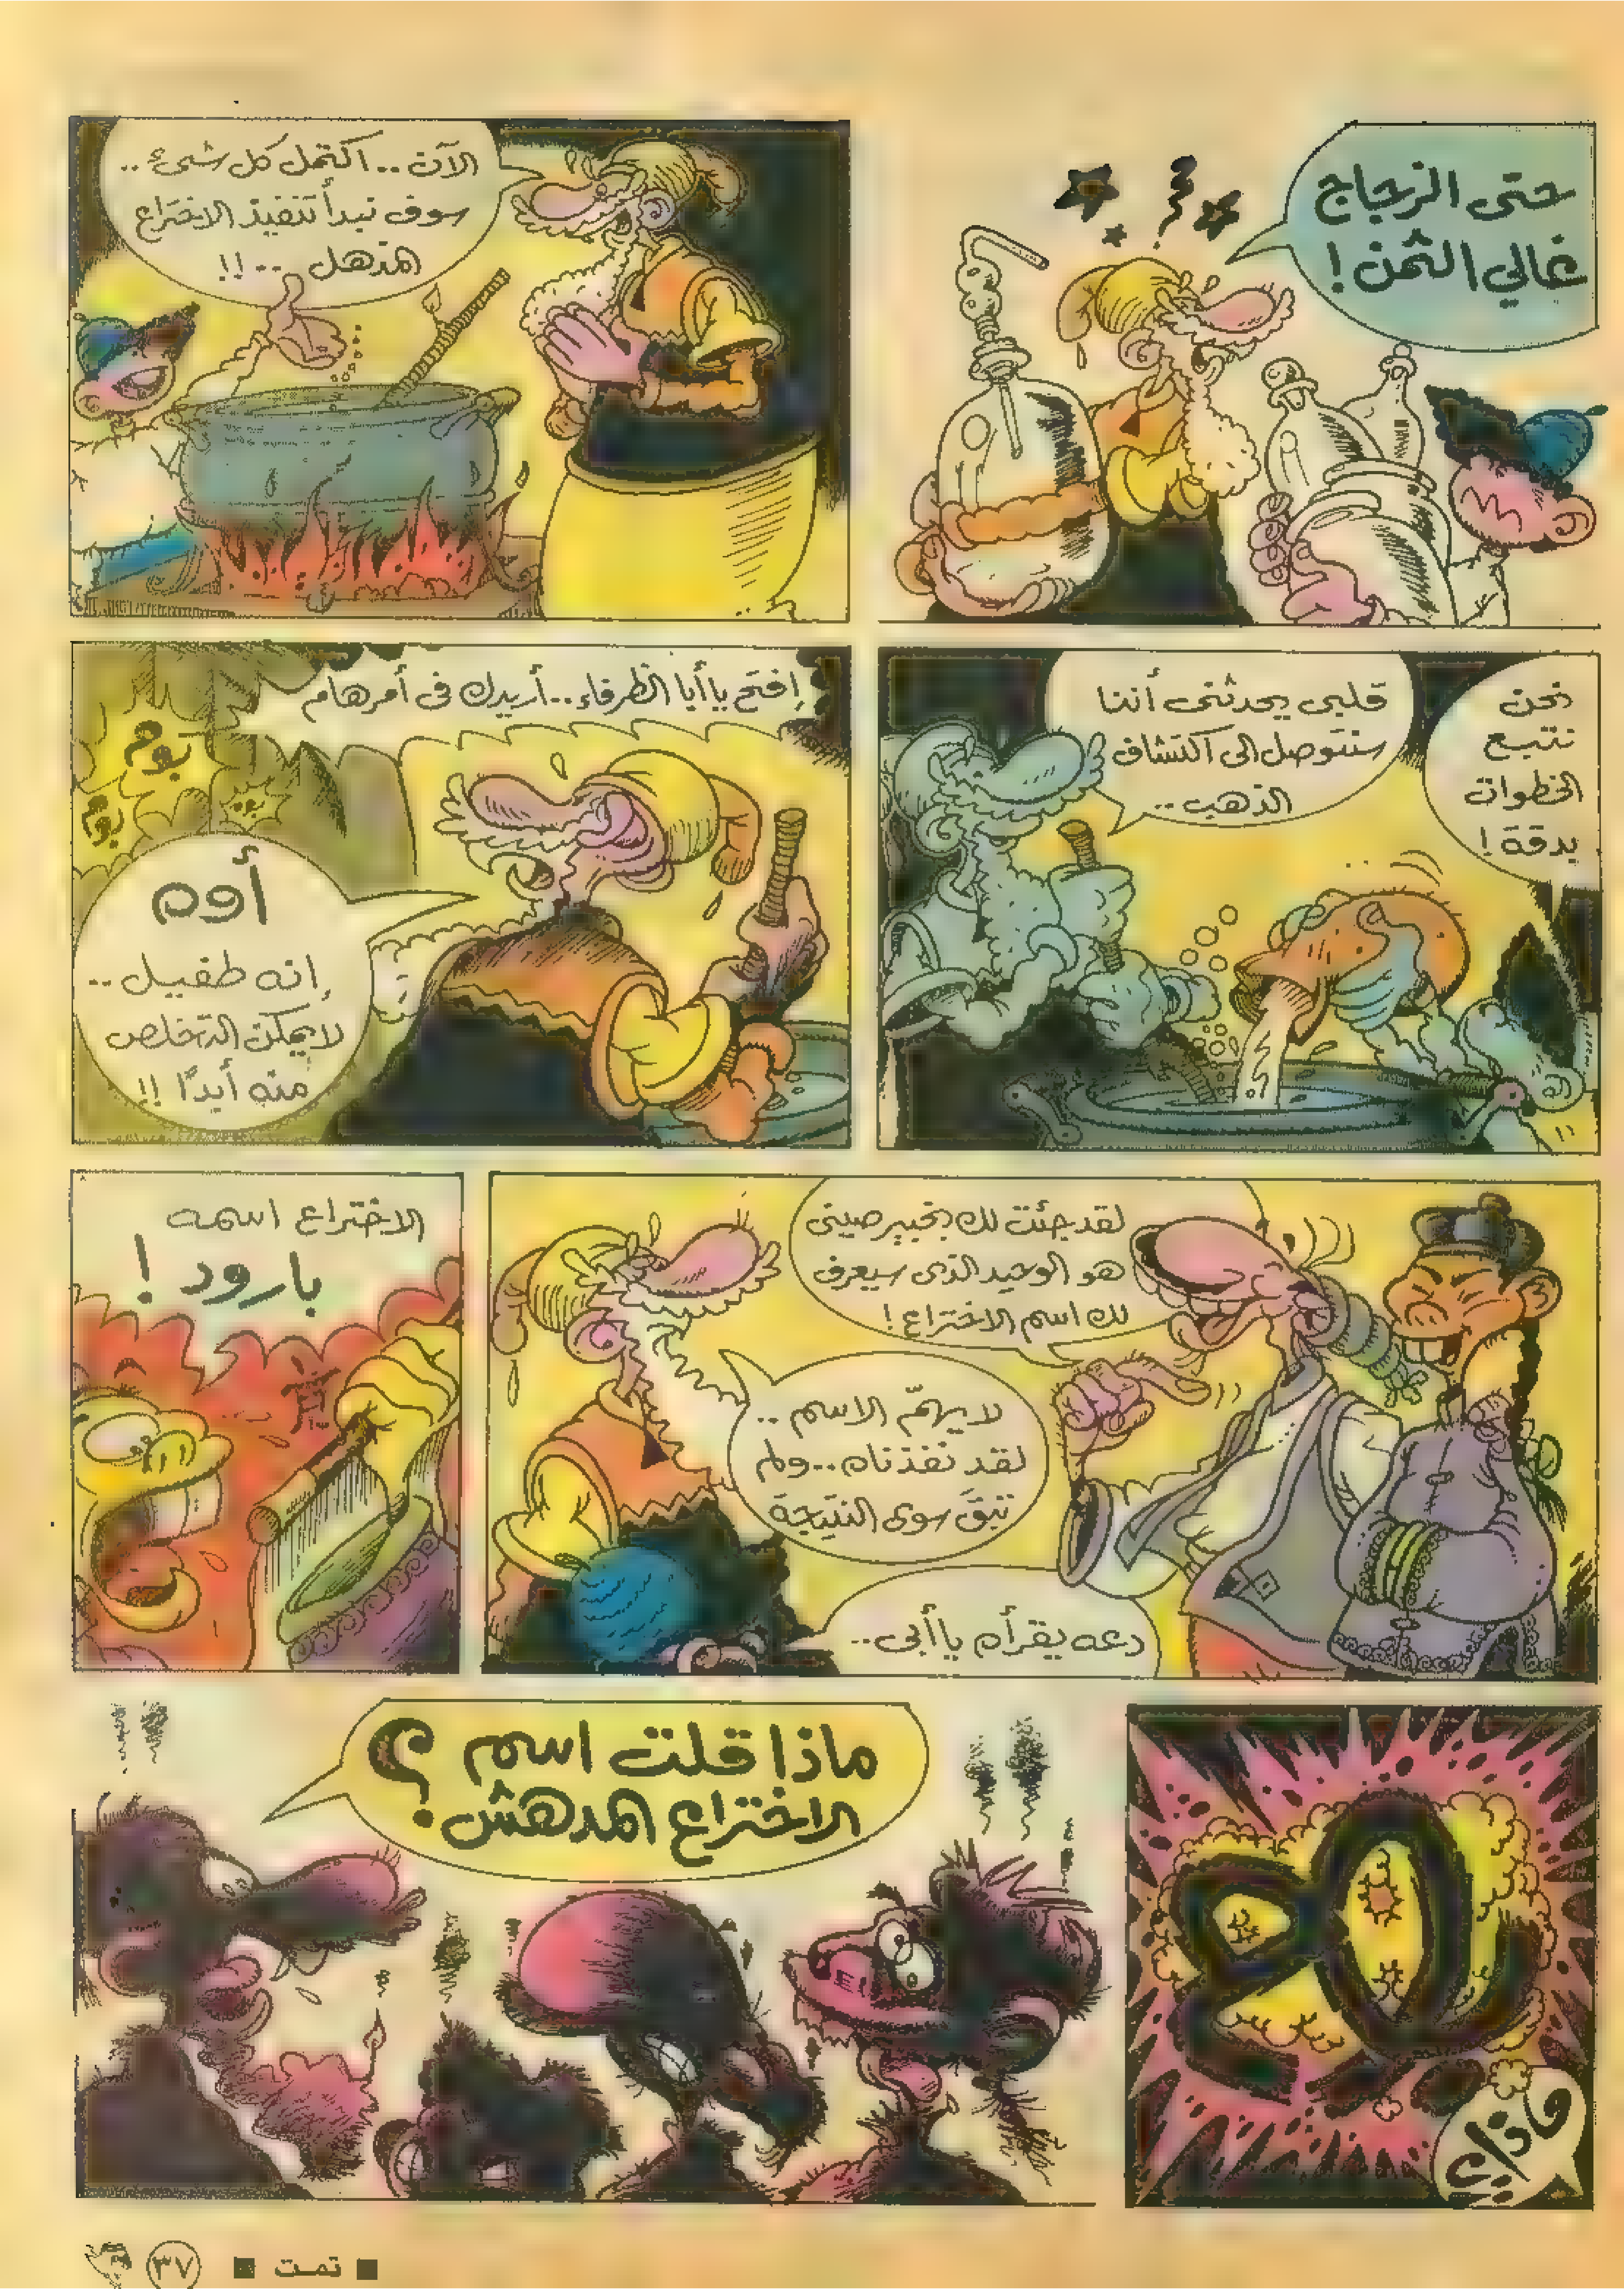 حتى الزجاج
غالي الثمن!
الآن.. اكتمل كل شيء..
سوف نبدأ تنفيذ الاختراع
المذهل ..!!
نحن
نتبع
الخطوات
بدقة!
قلبى يحدثنى أننا
سنتوصل الى اكتشاف
الذهب..
إفتح يا أبا الظرفاء.. أريدك فى أمر هام
بوم
بوم
بوم
أوه
إنه طفيل..
لا يمكن التخلص
منه أبدًا!!
لقد جئت لك بخبير صينى
هو الوحيد الذى سيعرف
لك اسم الاختراع!
لا يهمّ الاسم..
لقد نفذناه.. ولم
تبقَ سوى النتيجة
دعه يقرأه يا أبى..
الاختراع اسمه
بارود!
ماذا قلت اسم
الاختراع المدهش؟
■ تمت ■ ٣٧